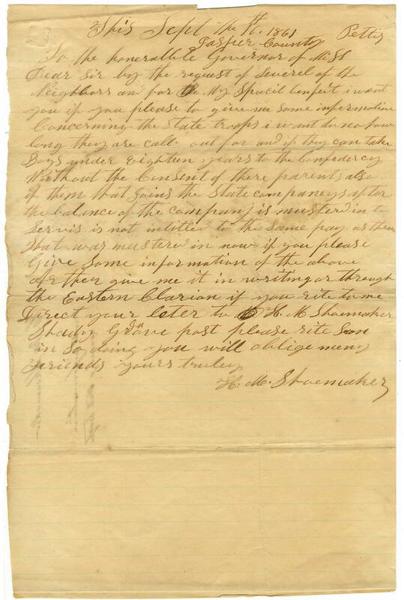 This Sept the 1st. 1861
Jasper County Pettis
To the honorable Governor of Miss
Dear Sir boy the request of Severel of the
Neighbors an for My Spacil benfit i want
you if you please to give me some information
Concerning the State troops i want do no how
long they are call out for and if they can take
Boys under Eighteen years to the Confedercy
Without the Consent of there parents also
if them that Gains the State companeys after
the balance of the company is musterd in to
Servis is not intitled to the Same pay as them
that was mustered in now if you please
Give Some information of the above
give me it in writing or through
the Eastern Clarion if you rite to me
Direct your leter to H. M. Shoemaker
Shady Grove post please rite Soon
in So doing you will oblige meny
friends yours truley
H. M. Shoemaker